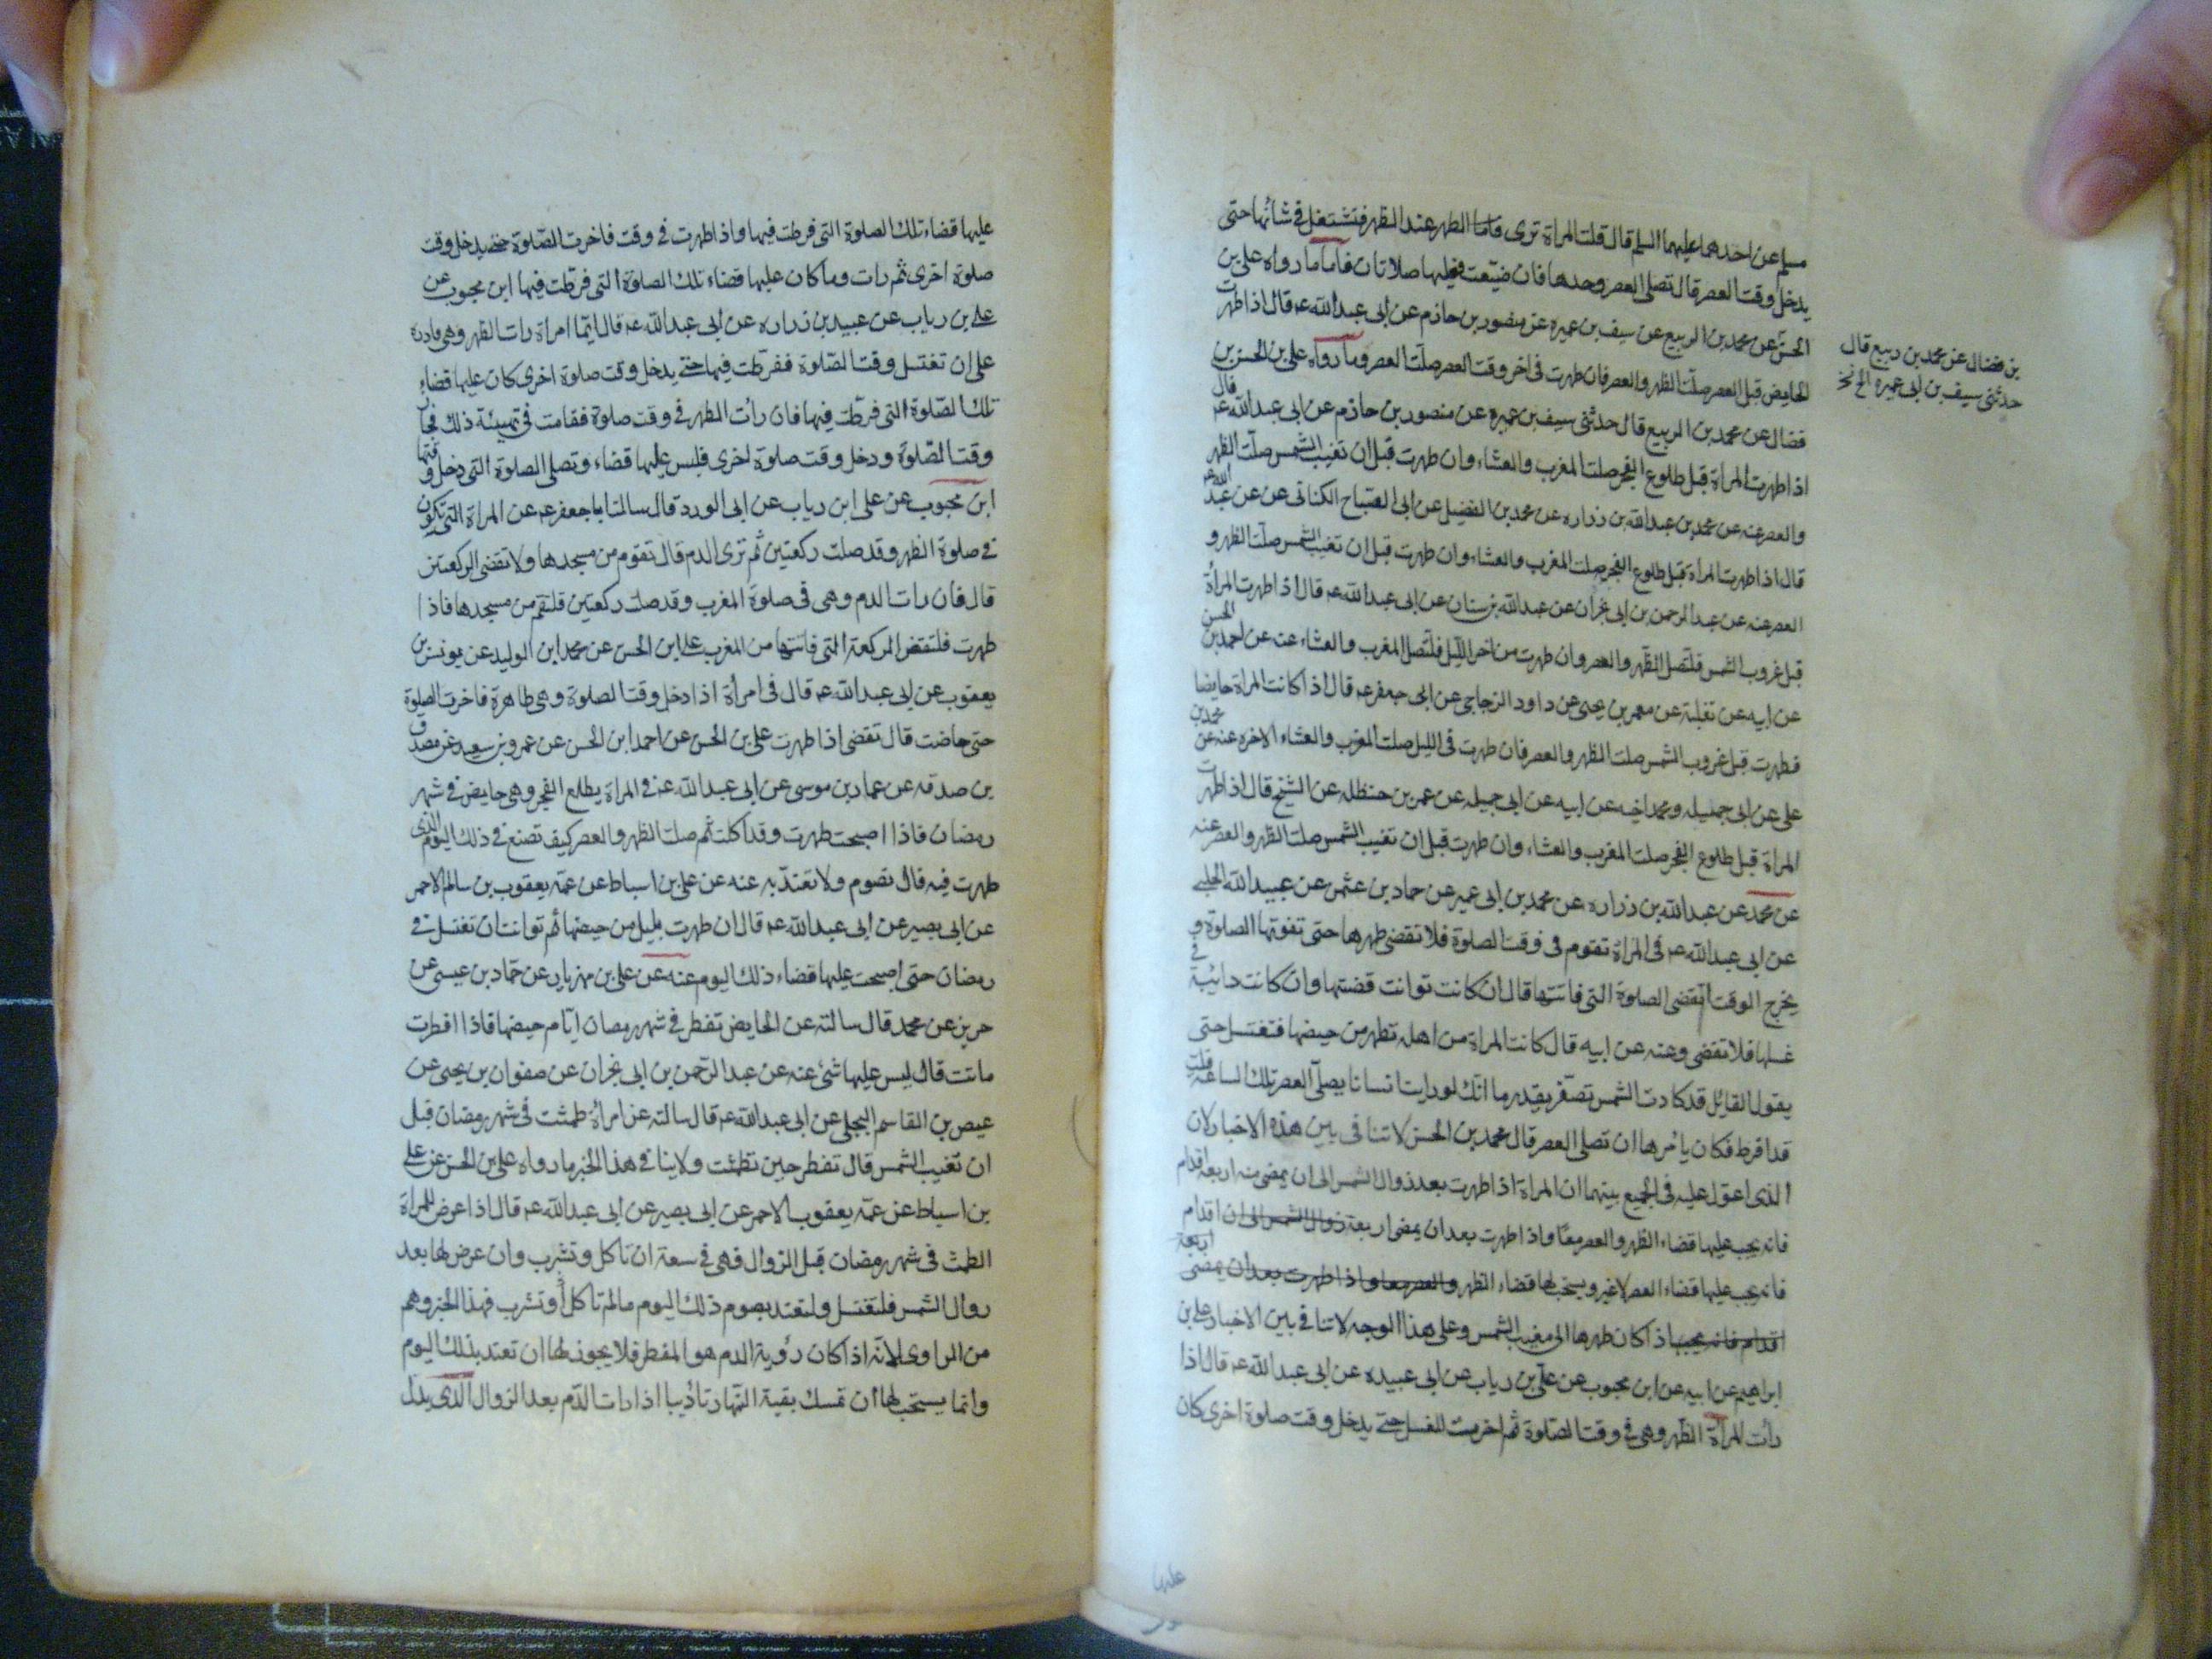 مسلم عن احدهما عليهما السلم قال قلت المراة ترى الطهر عند الظهر فتشتغل في شانها حتى
يدخل وقت العصر قال تصلى العصر وحدها فان ضيّعت فعليها صلاتان فاما ما رواه على بن
الحسن عن محمد بن الربيع عن سيف بن عميره عن منصور بن حازم عن ابى عبد الله عه قال اذا طهرت
الحايض قبل العصر صلّت الظهر والعصر فان طهرت فى اخر وقت العصر صلّت العصر وما رواه على بن الحسن بن
فضال عن محمد بن الربيع قال حدثنى سيف بن عميره عن منصور بن حازم عن ابى عبد الله عه قال
اذا طهرت المراة قبل طلوع الفجر صلت المغرب والعشاء وان طهرت قبل ان تغيب الشمس صلّت الظهر
والعصر عنه عن محمد بن عبد الله بن زراره عن محمد بن الفضيل عن ابى الصباح الكنانى عن عن عبد الله عه
قال اذا طهرت المراة قبل طلوع الفجر صلت المغرب والعشاء وان طهرت قبل ان تغيب الشمس صلّت الظهر و
العصر عنه عن عبد الرحمن بن ابى نجران عن عبد الله بن سنان عن ابى عبد الله عه قال اذا طهرت المراة
قبل غروب الشمس فلتصل الظهر والعصر وان طهرت من اخر الليل فلتصل المغرب والعشاء عنه عن احمد بن الحسن
عن ابيه عن ثعلبة عن معمر بن يحيى عن داود الزجاجى عن ابى جعفر عه قال اذا كانت المراة حايضا
فطهرت قبل غروب الشمس صلت الظهر والعصر فان طهرت فى الليل صلت المغرب والعشاء الاخره عنه عن محمد بن
على عن ابى جميله ومحمد اخيه عن ابيه عن ابى جميله عن عمر بن حنظله عن الشيخ قال اذا طهرت
المراة قبل طلوع الفجر صلت المغرب والعشاء وان طهرت قبل ان تغيب الشمس صلت الظهر والعصر عنه
عن محمد عن عبد الله بن زراره عن محمد بن ابى عمير عن حماد بن عثمن عن عبيد الله الحلبى
عن ابى عبد الله عه فى المراة تقوم فى وقت الصلوة فلا تقضى طهرها حتى تفوتها الصلوة و
يخرج الوقت اتقضى الصلوة التى فاتتها قال ان كانت توانت قضتها وان كانت دائبة فى
غسلها فلا تقضى وعنه عن ابيه قال كانت المراة من اهله تطهر من حيضها فتغتسل حتى
يقول القايل قد كادت الشمس تصفر بقدر ما انك لو رايت انسانا يصلّى العصر تلك الساعة قلت
قد افرط فكان يامرها ان تصلى العصر قال محمد بن الحسن لا تنافى بين هذه الاخبار لان
الذى اعوّل عليه فى الجميع بينهما ان المراة اذا طهرت بعد زوال الشمس الى ان يمضى منه اربعة اقدام
فانه يجب عليها قضاء الظهر والعصر معًا واذا طهرت بعد ان يمضى اربعة زوال الشمس الى ان اقدام
فانه يجب عليها قضاء العصر لا غير ويستحب لها قضاء الظهر والعصر معا واذا طهرت بعد ان يمضى اربعة
اقدام فانه يجب اذا كان طهرها الى مغيب الشمس وعلى هذا الوجه لا تنافى بين الاخبار على بن
ابراهيم عن ابيه عن ابن محبوب عن على بن رياب عن ابى عبيده عن ابى عبد الله عه قال اذا
رأت المرأة الطهر وهى فى وقت الصّلوة ثم اخرت الغسل حتى يدخل وقت صلوة اخرى كان
بن فضال عن محمد بن ربيع قال
حدثنى سيف بن ابى عميره الخ نخ
عليها
عليها قضاء تلك الصلوة التى فرطت فيها واذا طهرت فى وقت فاخرت الصّلوة حتى يدخل وقت
صلوة اخرى ثم رات دما كان عليها قضاء تلك الصلوة التى فرّطت فيها ابن محبوب عن
على بن رياب عن عبيد بن زراره عن ابى عبد الله عه قال ايّما امراة رات الطهر وهى قادرة
على ان تغتسل وقت الصّلوة ففرّطت فيها حتى يدخل وقت صلوة اخرى كان عليها قضاء
تلك الصّلوة التى فرّطت فيها فان رأت الطهر فى وقت صلوة فقامت فى تهيئة ذلك فجاز
وقت الصّلوة ودخل وقت صلوة اخرى فليس عليها قضاء وتصلى الصلوة التى دخل وقتها
ابن محبوب عن على ابن رياب عن ابى الورد قال سالت ابا جعفر عه عن المراة التى تكون
فى صلوة الظهر وقد صلت ركعتين ثم ترى الدم قال تقوم من مسجدها ولا تقضى الركعتين
قال فان رات الدم وهى فى صلوة المغرب وقد صلت ركعتين فلتقم من مسجدها فاذا ا
طهرت فلتقض الركعة التى فاتتها من المغرب على ابن الحسن عن محمد ابن الوليد عن يونس بن
يعقوب عن ابى عبد الله عه قال فى امرأة اذا دخل وقت الصلوة وهى طاهرة فاخرت الصلوة
حتى حاضت قال تقضى اذا طهرت على بن الحسن عن احمد ابن الحسن عن عمرو بن سعيد عن مصدق
بن صدقه عن عمار بن موسى عن ابى عبد الله عه فى المراة يطلع الفجر وهى حايض فى شهر
رمضان فاذا اصبحت طهرت وقد اكلت ثم صلت الظهر والعصر كيف تصنع فى ذلك اليوم الذى
طهرت فيه قال تصوم ولا تعتدّ به عنه عن على بن اسباط عن عمّه يعقوب بن سالم الاحمر
عن ابى بصير عن ابى عبد الله عه قال ان طهرت بليل من حيضها ثم توانت ان تغتسل فى
رمضان حتى اصبحت عليها قضاء ذلك اليوم عنه عن على بن مهزيار عن حمّاد بن عيسى عن
حريز عن محمد قال سالته عن الحايض تفطر فى شهر رمضان ايّام حيضها فاذا افطرت
ماتت قال ليس عليها شئ عنه عن عبد الرّحمن بن ابى نجران عن صفوان بن يحيى عن
عيص بن القاسم البجلى عن ابى عبد الله عه قال سالته عن امراة طمثت فى شهر رمضان قبل
ان تغيب الشمس قال تفطر حين تطمثت ولا ينا فى هذا الخبر ما رواه على بن الحسن عن على
بن اسباط عن عمّه يعقوب الاحمر عن ابى بصير عن ابى عبد الله عه قال اذا عرض للمراة
الطمث فى شهر رمضان قبل الزوال فهى فى سعة ان تاكل وتشرب وان عرض لها بعد
زوال الشمس فلتغتسل ولتعتد بصوم ذلك اليوم ما لم تاكل أو تشرب فهذا الخبر وهم
من الراوى لانّه اذا كان رؤية الدم هو المفطر فلا يجوز لها ان تعتد بذلك اليوم
وانما يستحب لها ان تمسك بقية النّهار تأديبا اذا رات الدّم بعد الزوال الذى يدل